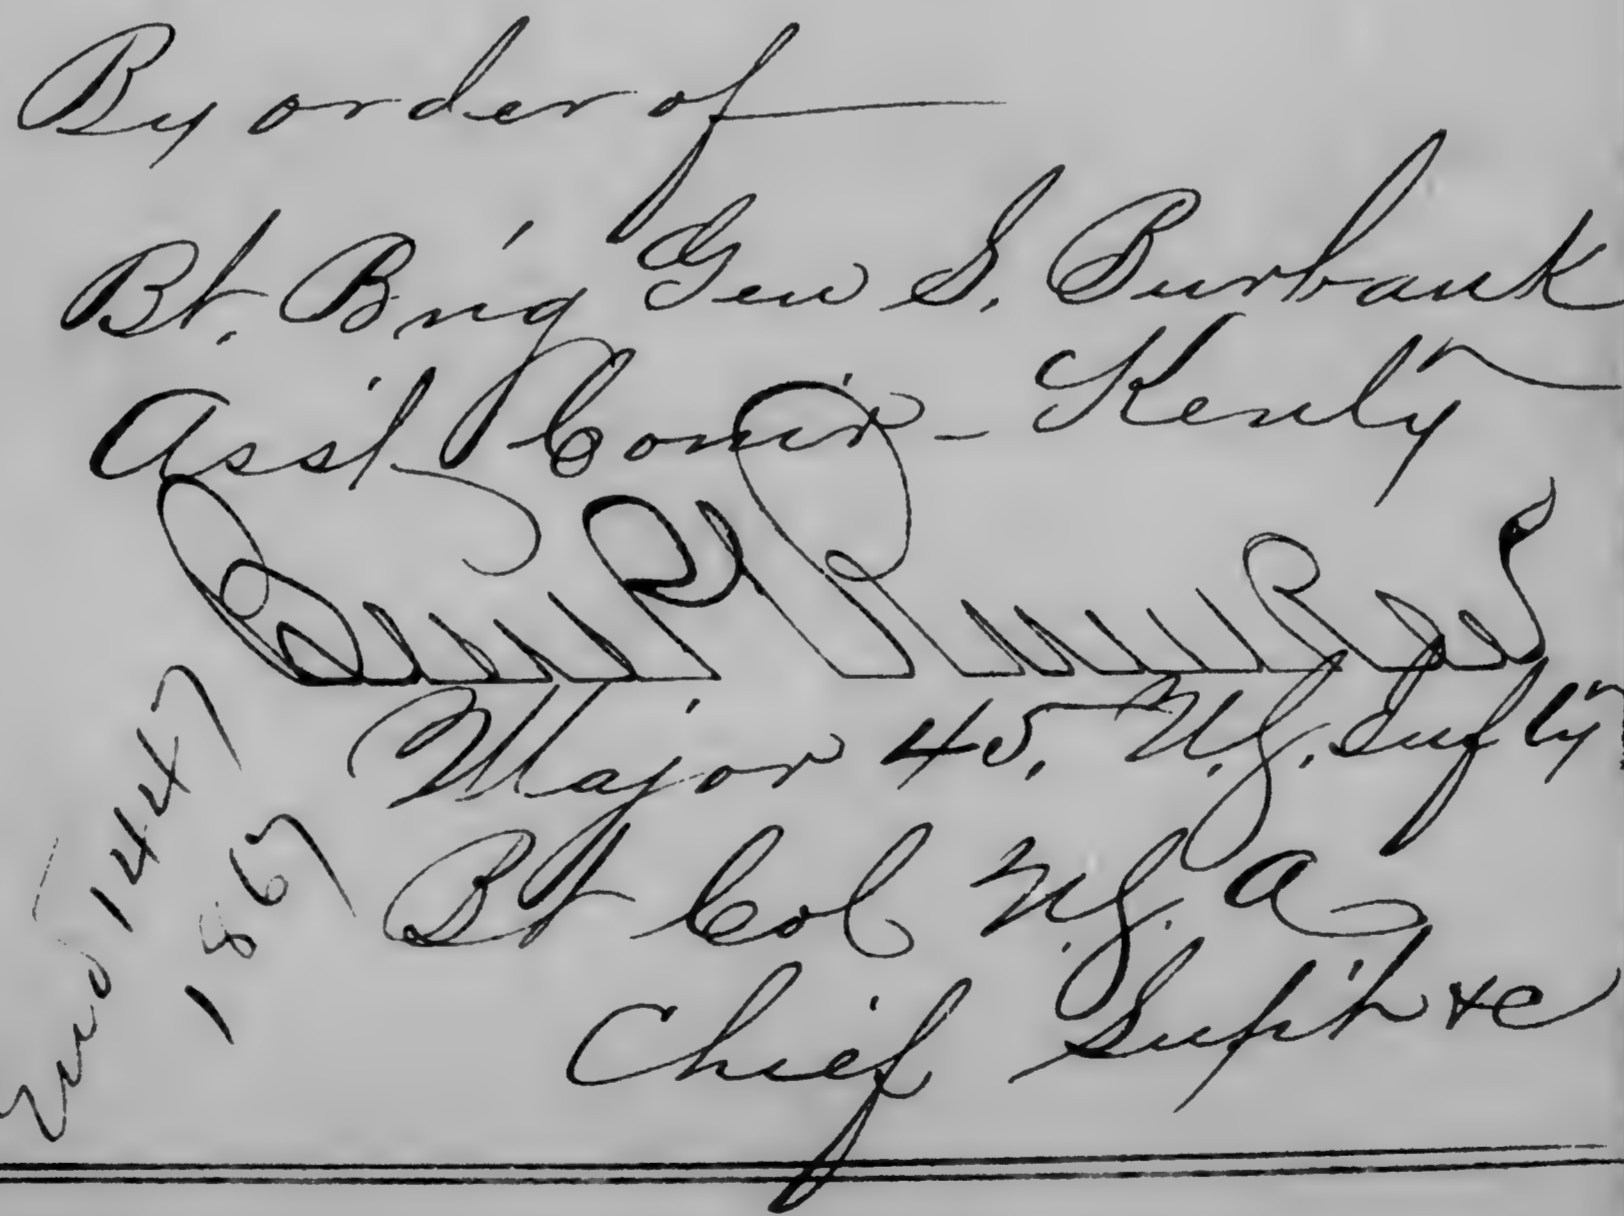 By order of
Bt. Brig Gen S. Burbank
Asst Com'r - Kent'y
Benj P Runkle
Major 45. U.S. Inf'ty
Bt Col U.S. A
Chief Sup't &c
1447
1867